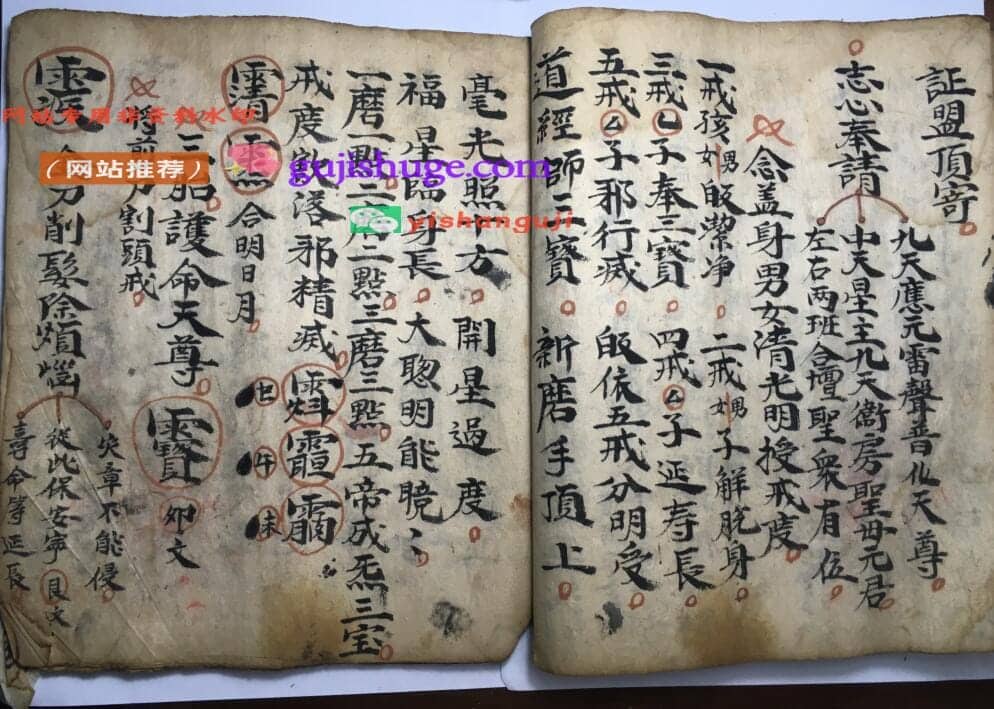 証盟頂寄
志心奉請
九天應元雷聲普化天尊
中天星主九天衛房聖毋元君
左右两班合壇聖衆有伍
念盖身男女清光明授戒度
一戒孩男女皈潔净 二戒男女子解脫身
三戒子奉三寶 四戒子延寿長
五戒子邪行滅 皈依五戒分明受
道經師三寶 新磨手頂上
毫光照方 開星過度
福星臨身長 大聦明能聴
一磨一點二磨二點三磨三點五帝成炁三宝
戒度 落邪精滅
合明日月
七 午 未
三胎護命天尊
卯文
剪刀割頭戒
刀削髮除煩惱
灾章不能侵
從此保安寧
壽命等延長
艮文
网站专用
(网站推荐)
gujishuge.com
yishanguji